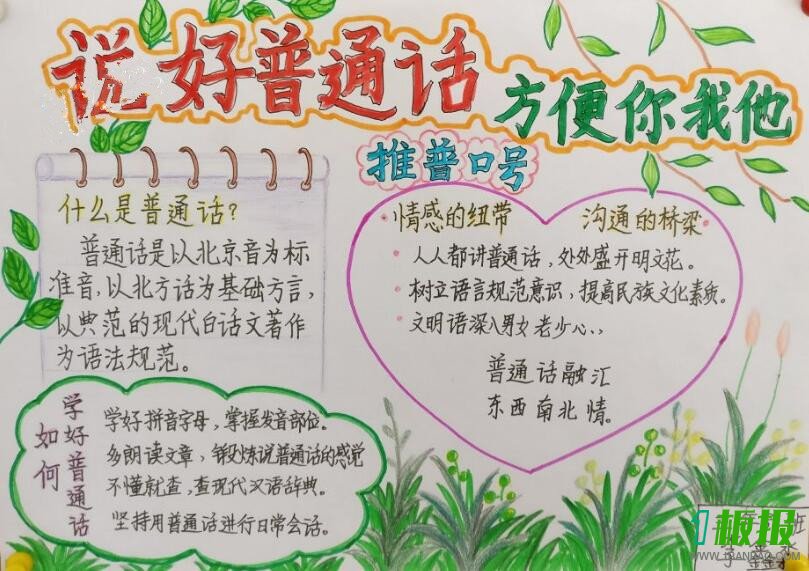 说好普通话
方便你我他
推普口号
什么是普通话?
普通话是以北京音为标
准音,以北方话为基础方言,
以典范的现代白话文著作
为语法规范。
情感的纽带 沟通的桥梁
人人都讲普通话,处处盛开明文花。
树立语言规范意识,提高民族文化素质。
文明语深入男女老少心、、
普通话融汇
东西南北情。
如何
学好普通话
学好拼音字母,掌握发音部位。
多朗读文章,锻炼说普通话的感觉
不懂就查,查现代汉语辞典。
坚持用普通话进行日常会话。
班
板报